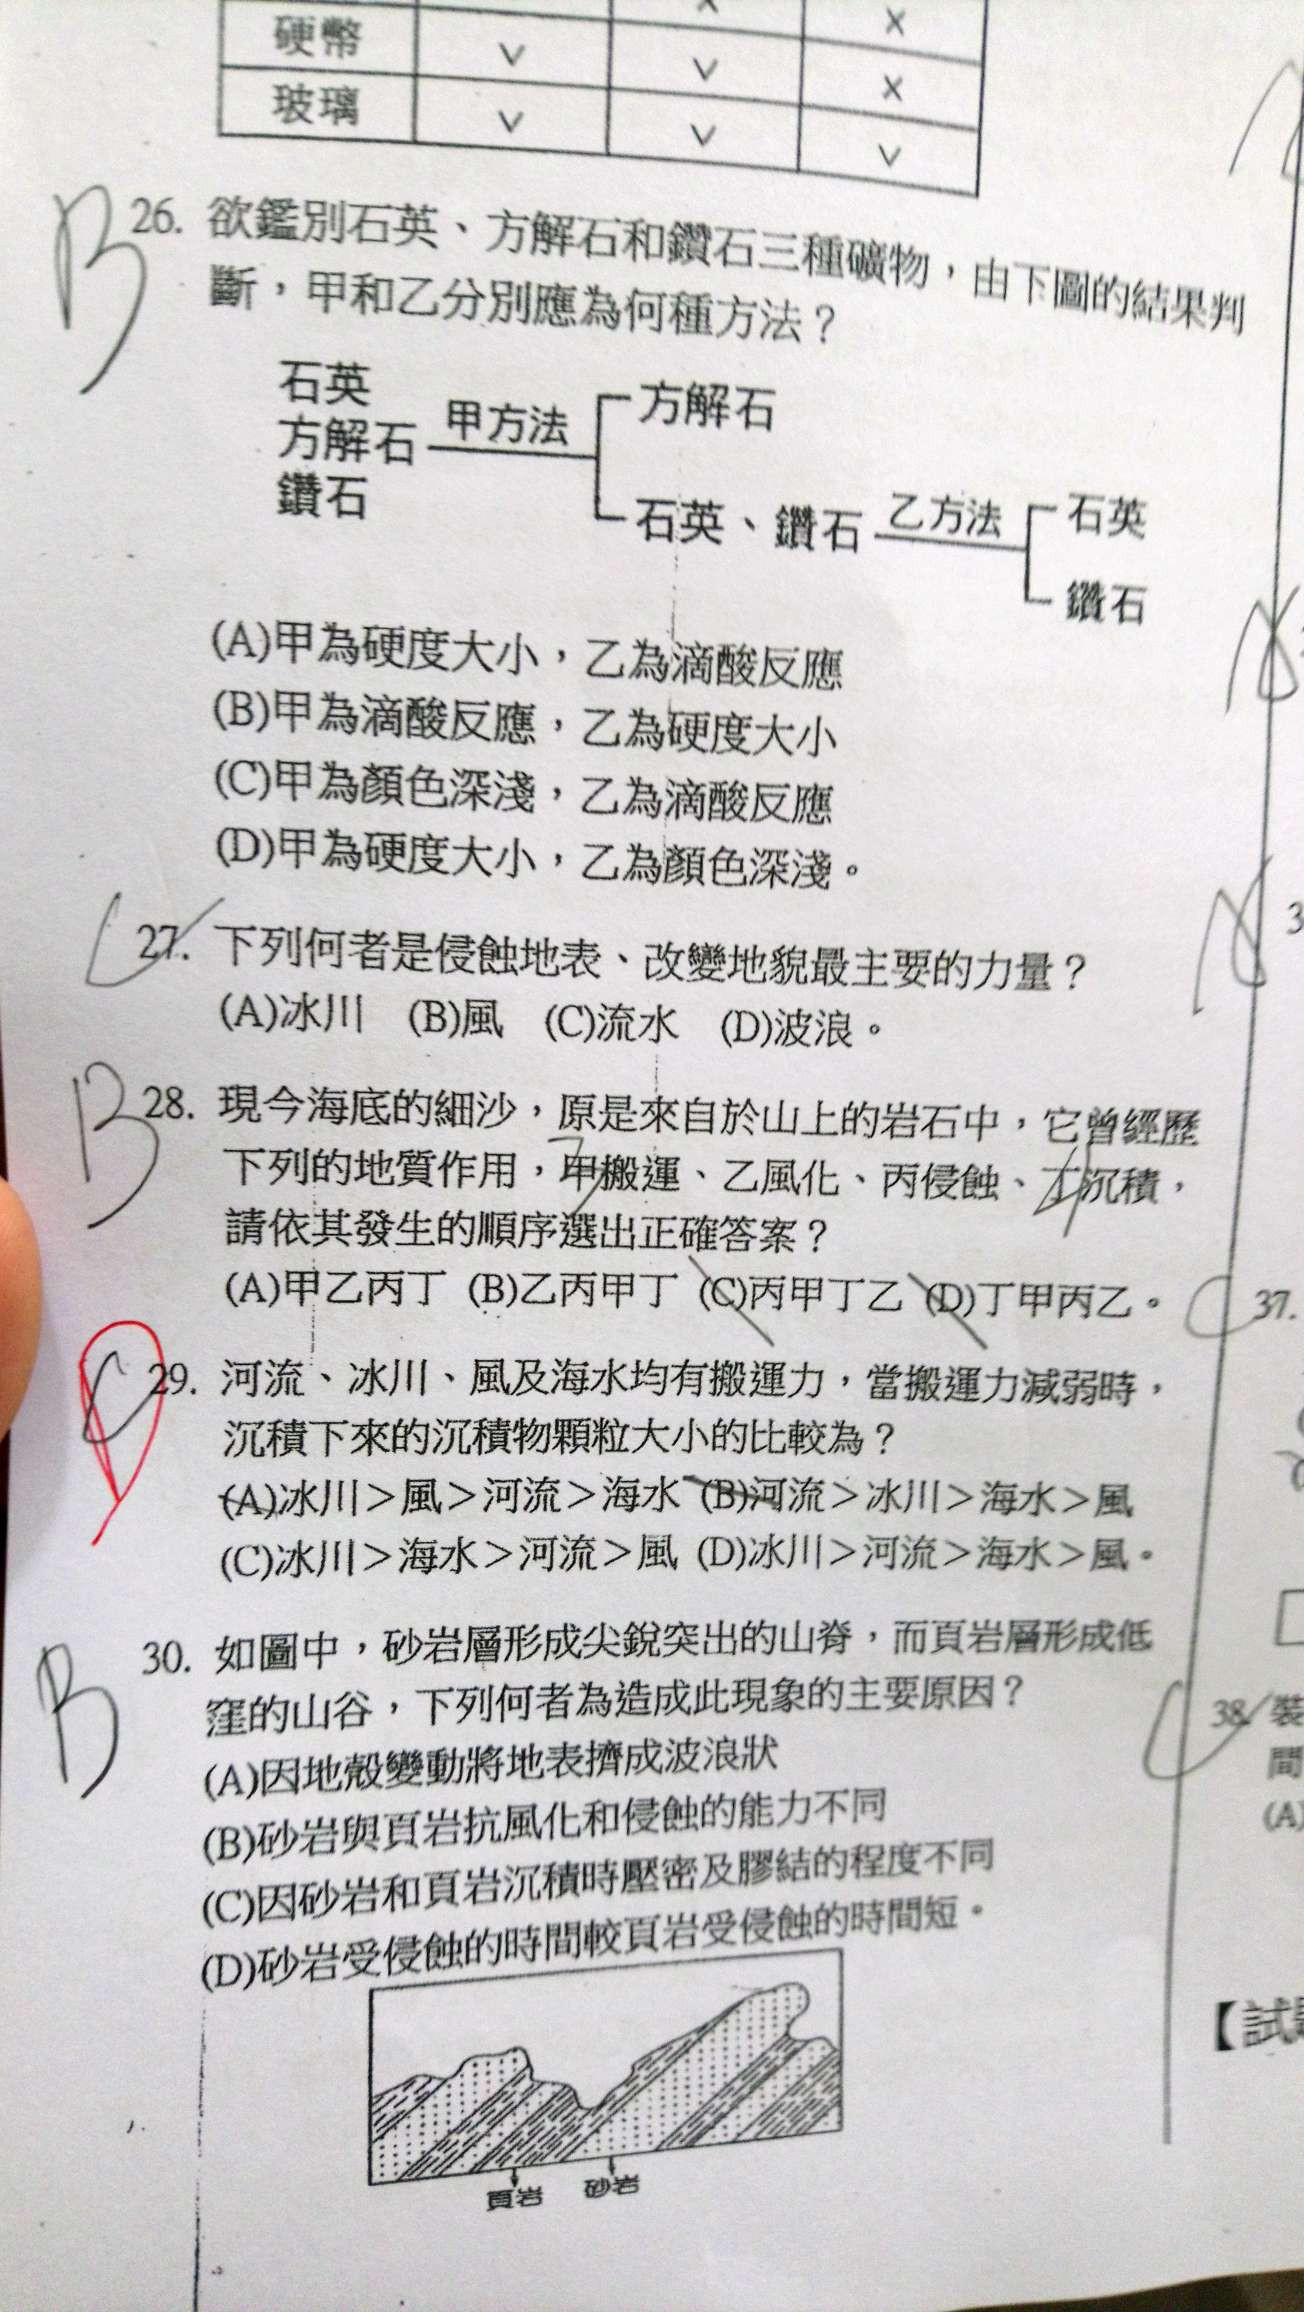 硬幣 V V X
玻璃 V V V
X
B
26. 欲鑑別石英、方解石和鑽石三種礦物，由下圖的結果判
斷，甲和乙分別應為何種方法？
石英
方解石
鑽石
甲方法
方解石
石英、鑽石
乙方法
石英
鑽石
(A)甲為硬度大小，乙為滴酸反應
(B)甲為滴酸反應，乙為硬度大小
(C)甲為顏色深淺，乙為滴酸反應
(D)甲為硬度大小，乙為顏色深淺。
C
27. 下列何者是侵蝕地表、改變地貌最主要的力量？
(A)冰川 (B)風 (C)流水 (D)波浪。
B
28. 現今海底的細沙，原是來自於山上的岩石中，它曾經歷
下列的地質作用，甲搬運、乙風化、丙侵蝕、丁沉積，
請依其發生的順序選出正確答案？
(A)甲乙丙丁 (B)乙丙甲丁 (C)丙甲丁乙 (D)丁甲丙乙。
C
29. 河流、冰川、風及海水均有搬運力，當搬運力減弱時，
沉積下來的沉積物顆粒大小的比較為？
(A)冰川＞風＞河流＞海水 (B)河流＞冰川＞海水＞風
(C)冰川＞海水＞河流＞風 (D)冰川＞河流＞海水＞風。
B
30. 如圖中，砂岩層形成尖銳突出的山脊，而頁岩層形成低
窪的山谷，下列何者為造成此現象的主要原因？
(A)因地殼變動將地表擠成波浪狀
(B)砂岩與頁岩抗風化和侵蝕的能力不同
(C)因砂岩和頁岩沉積時壓密及膠結的程度不同
(D)砂岩受侵蝕的時間較頁岩受侵蝕的時間短。
頁岩 砂岩
3
C
37.
C
38. 裝
間
(A)
【試題